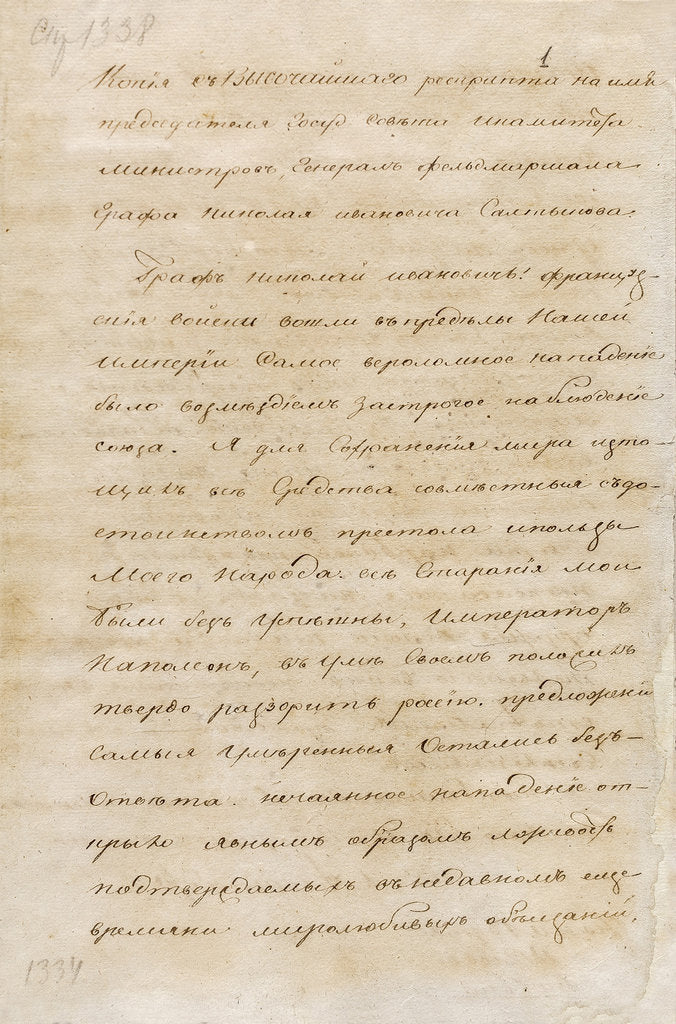 Спр 1338
1
Копія съ Высочайшаго рескрипта на имя
председателя Госуд Совѣта и камитета
министровъ, Генералъ фельдмаршала
Графа Николая ивановича Салтыкова.
Графъ Николай ивановичь! францус-
скія войски вошли въ предѣлы Нашей
империи Самое вероломное нападеніе
было возмѣздіемъ за строгое наблюденіе
союза. Я для Сохраненія мира исто-
щилъ всѣ Средства совмѣстныя съ до-
стоинствомъ престола и пользы
Моего Народа. всѣ Старанія мои
были без успѣшны, Императоръ
Наполеонъ, въ умѣ Своемъ положилъ
твердо раззорить россію. предложені
самыя умѣренныя Остались безъ-
Отвѣта. нечаянное нападеніе от-
крыло явнымъ образомъ лживость
подтверждаемыхъ въ недавномъ еще
времяни миролюбивыхъ обѣщаній.
1334